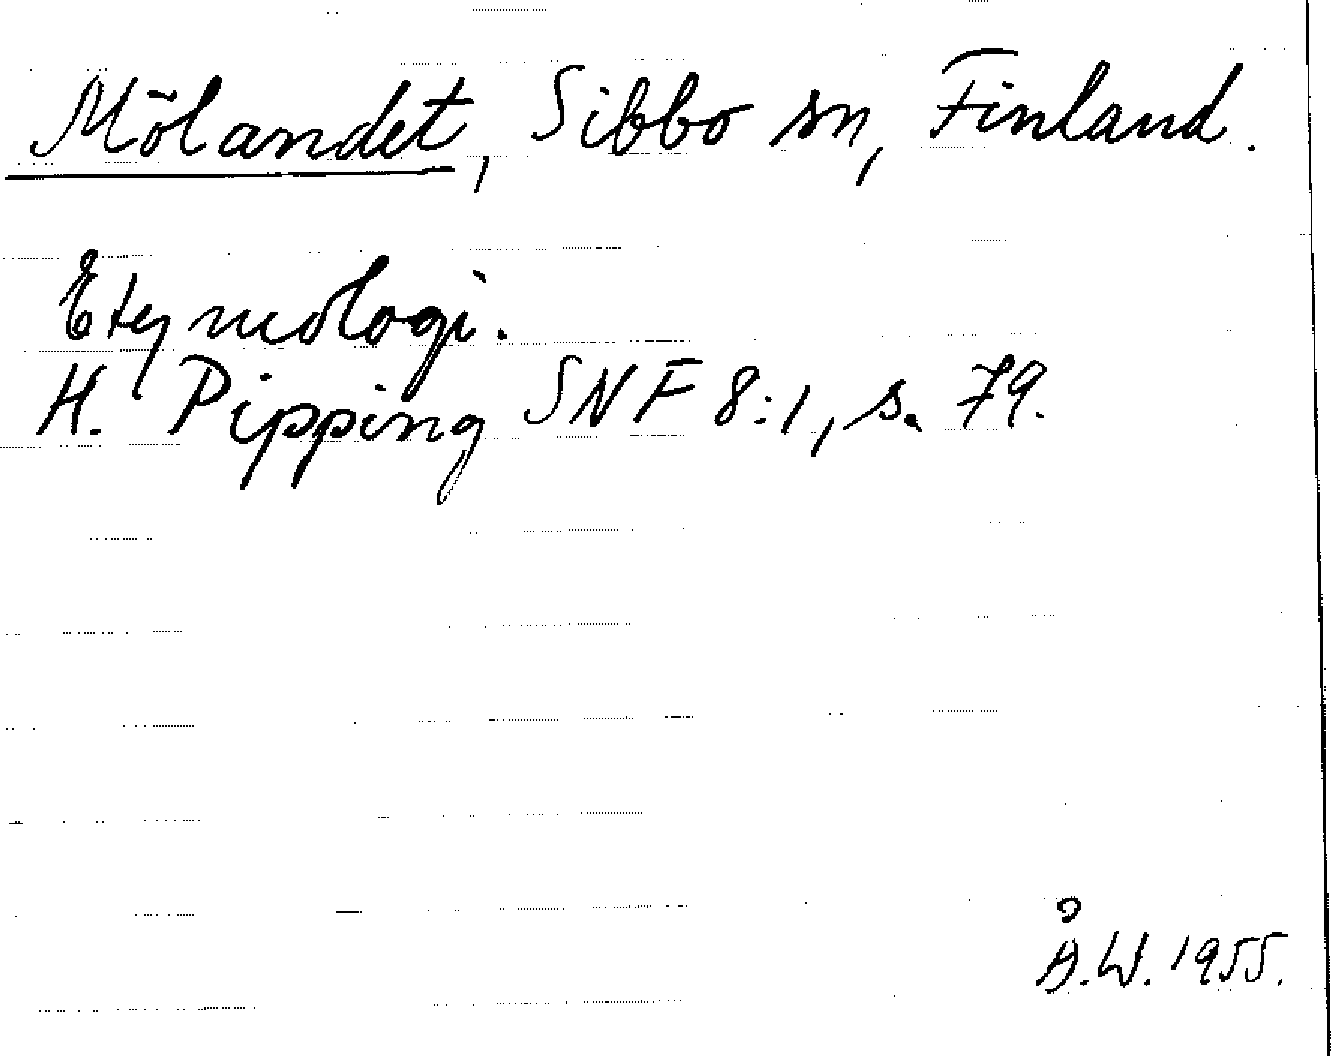 Mölandet, Sibbo sn, Finland.
Etymologi.
H. Pipping SNF 8:1, s. 79.
Å.W. 1955.